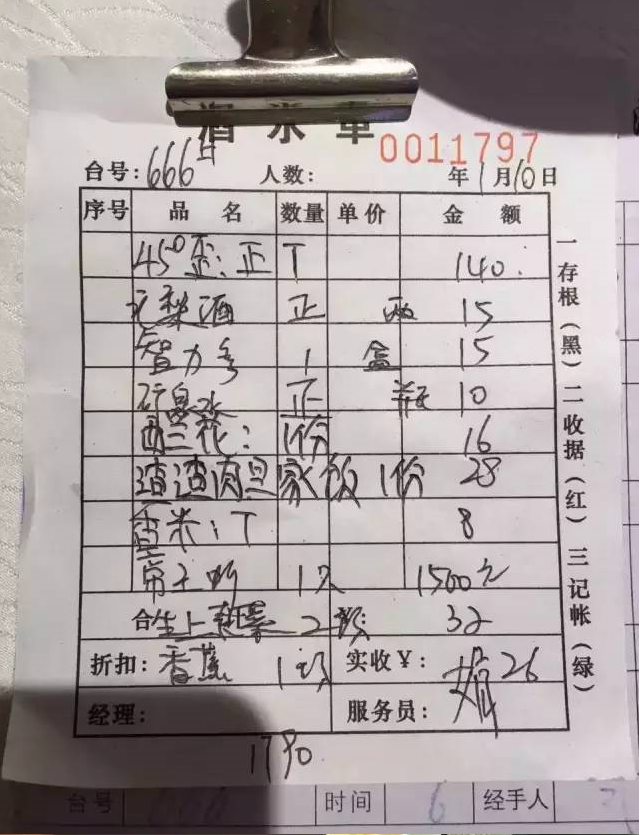 酒水单
0011797
台号: 666 人数: 年 1 月 10 日
序号 品名 数量 单价 金额
45° 歪: 正T 140
酒 正 两 15
智力多 1 盒 15
正 瓶 10
西兰花: 1份 16
渣渣肉豆 家饭 1份 28
T 8
帝王 1只 1500元
合 生上 2 32
折扣: 香蕉 1 实收¥: 26
经理: 服务员:
1790
一存根(黑)二收据(红)三记帐(绿)
台号 666 时间 6 经手人